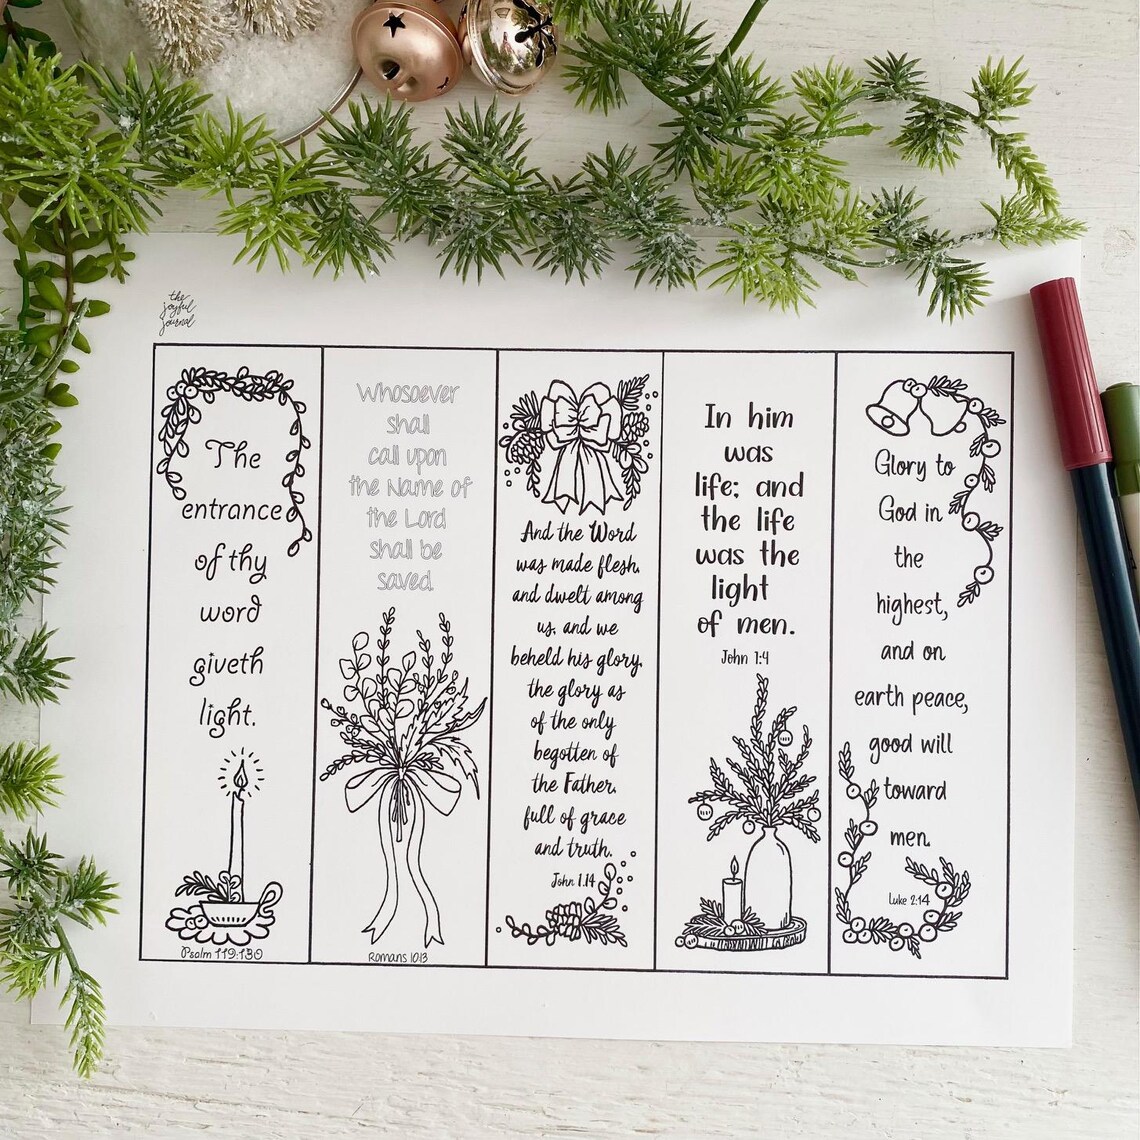 the
joyful
journal
The
entrance
of thy
word
giveth
light.
Psalm 119:130
Whosoever
shall
call upon
the Name of
the Lord
shall be
saved.
Romans 10:13
And the Word
was made flesh,
and dwelt among
us, and we
beheld his glory,
the glory as
of the only
begotten of
the Father,
full of grace
and truth.
John 1:14
In him
was
life; and
the life
was the
light
of men.
John 1:4
Glory to
God in
the
highest,
and on
earth peace,
good will
toward
men.
Luke 2:14